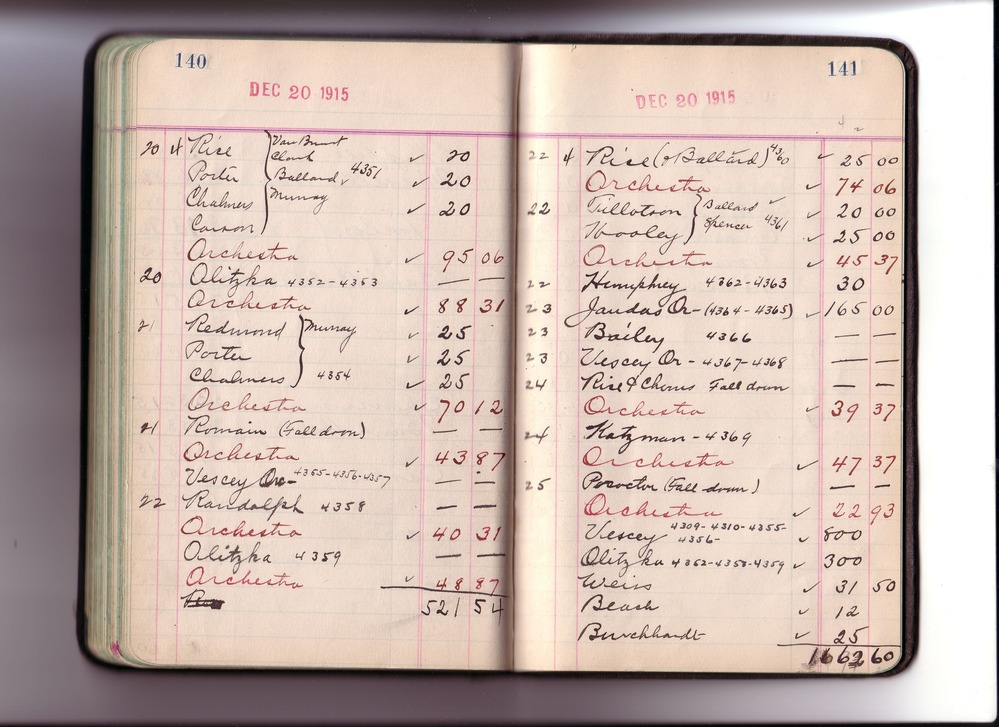 140
DEC 20 1915
20 4 Rise } Van Brunt ✓ 20
Clark
Porter Ballard ✓ 4351 ✓ 20
Chalmers Murray ✓ 20
Carson
Orchestra ✓ 95 06
20 Olitzka 4352-4353 — —
Orchestra ✓ 88 31
21 Redmond } Murray ✓ 25
Porter ✓ 25
Chalmers 4354 ✓ 25
Orchestra ✓ 70 12
21 Romain (Fall down) — —
Orchestra ✓ 43 87
Vescey Or- 4355-4356-4357 — —
22 Randolph 4358 — —
Orchestra ✓ 40 31
Olitzka 4359 — —
Orchestra ✓ 48 87
521 54
141
DEC 20 1915
22 4 Rise (& Ballard) 4360 ✓ 25 00
Orchestra ✓ 74 06
22 Tillotson } Ballard ✓ ✓ 20 00
Wooley Spencer 4361 ✓ 25 00
Orchestra ✓ 45 37
22 Humphrey 4362-4363 30
23 Jaudas Or- (4364-4365) ✓ 165 00
23 Bailey 4366 — —
23 Vescey Or- 4367-4368 — —
24 Rise & Chorus Fall down — —
Orchestra ✓ 39 37
24 Katzman - 4369
Orchestra ✓ 47 37
25 Poroctor (Fall down) — —
Orchestra ✓ 22 93
Vescey 4309-4310-4355-4356- ✓ 800
Olitzka 4352-4353-4359 ✓ 300
Weiss ✓ 31 50
Beach ✓ 12
Burckhardt ✓ 25
1662 60